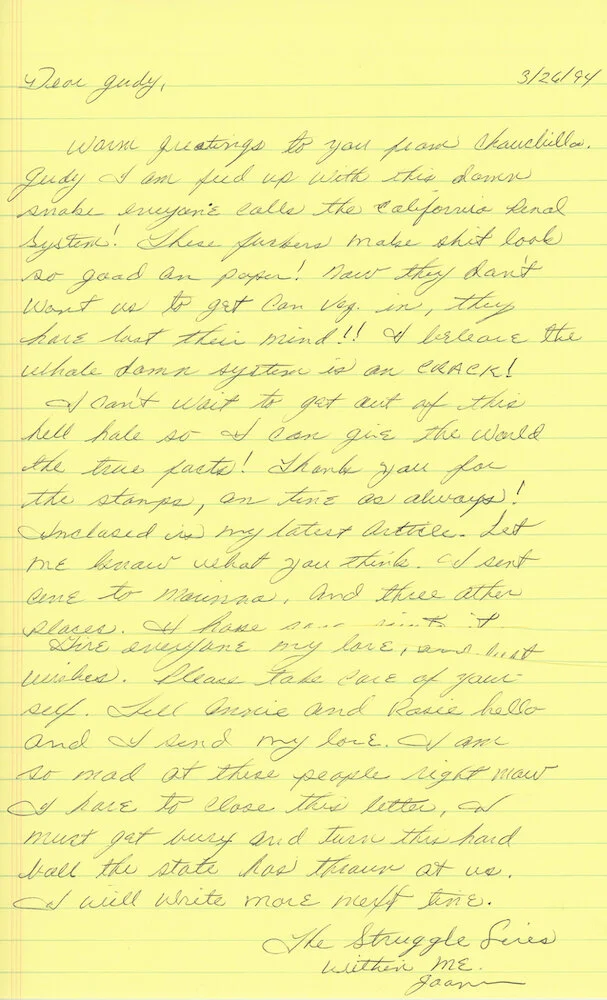 Dear Judy,
3/26/94
Warm greatings to you from Chauchilla.
Judy I am feed up with this damn
snake everyone calls the California Penal
System! These fuckers make shit look
so good on paper! Now they don't
want us to get Con Veg. in, they
have lost their mind!! I beleave the
whole damn system is on CRACK!
I can't wait to get out of this
hell hole so I can give the world
the true facts! Thank you for
the stamps, on time as always!
Inclosed is my latest Article. Let
me know what you think. I sent
one to Marinna, and three other
places. I hope it
Give everyone my love, and best
wishes. Please take care of your-
self. Tell Annie and Rosie hello
and I send my love. I am
so mad at these people right now
I have to close this letter, I
must get busy and turn this hard
ball the state has thrown at us.
I will write more next time.
The Struggle Lives
Within Me.
Joann